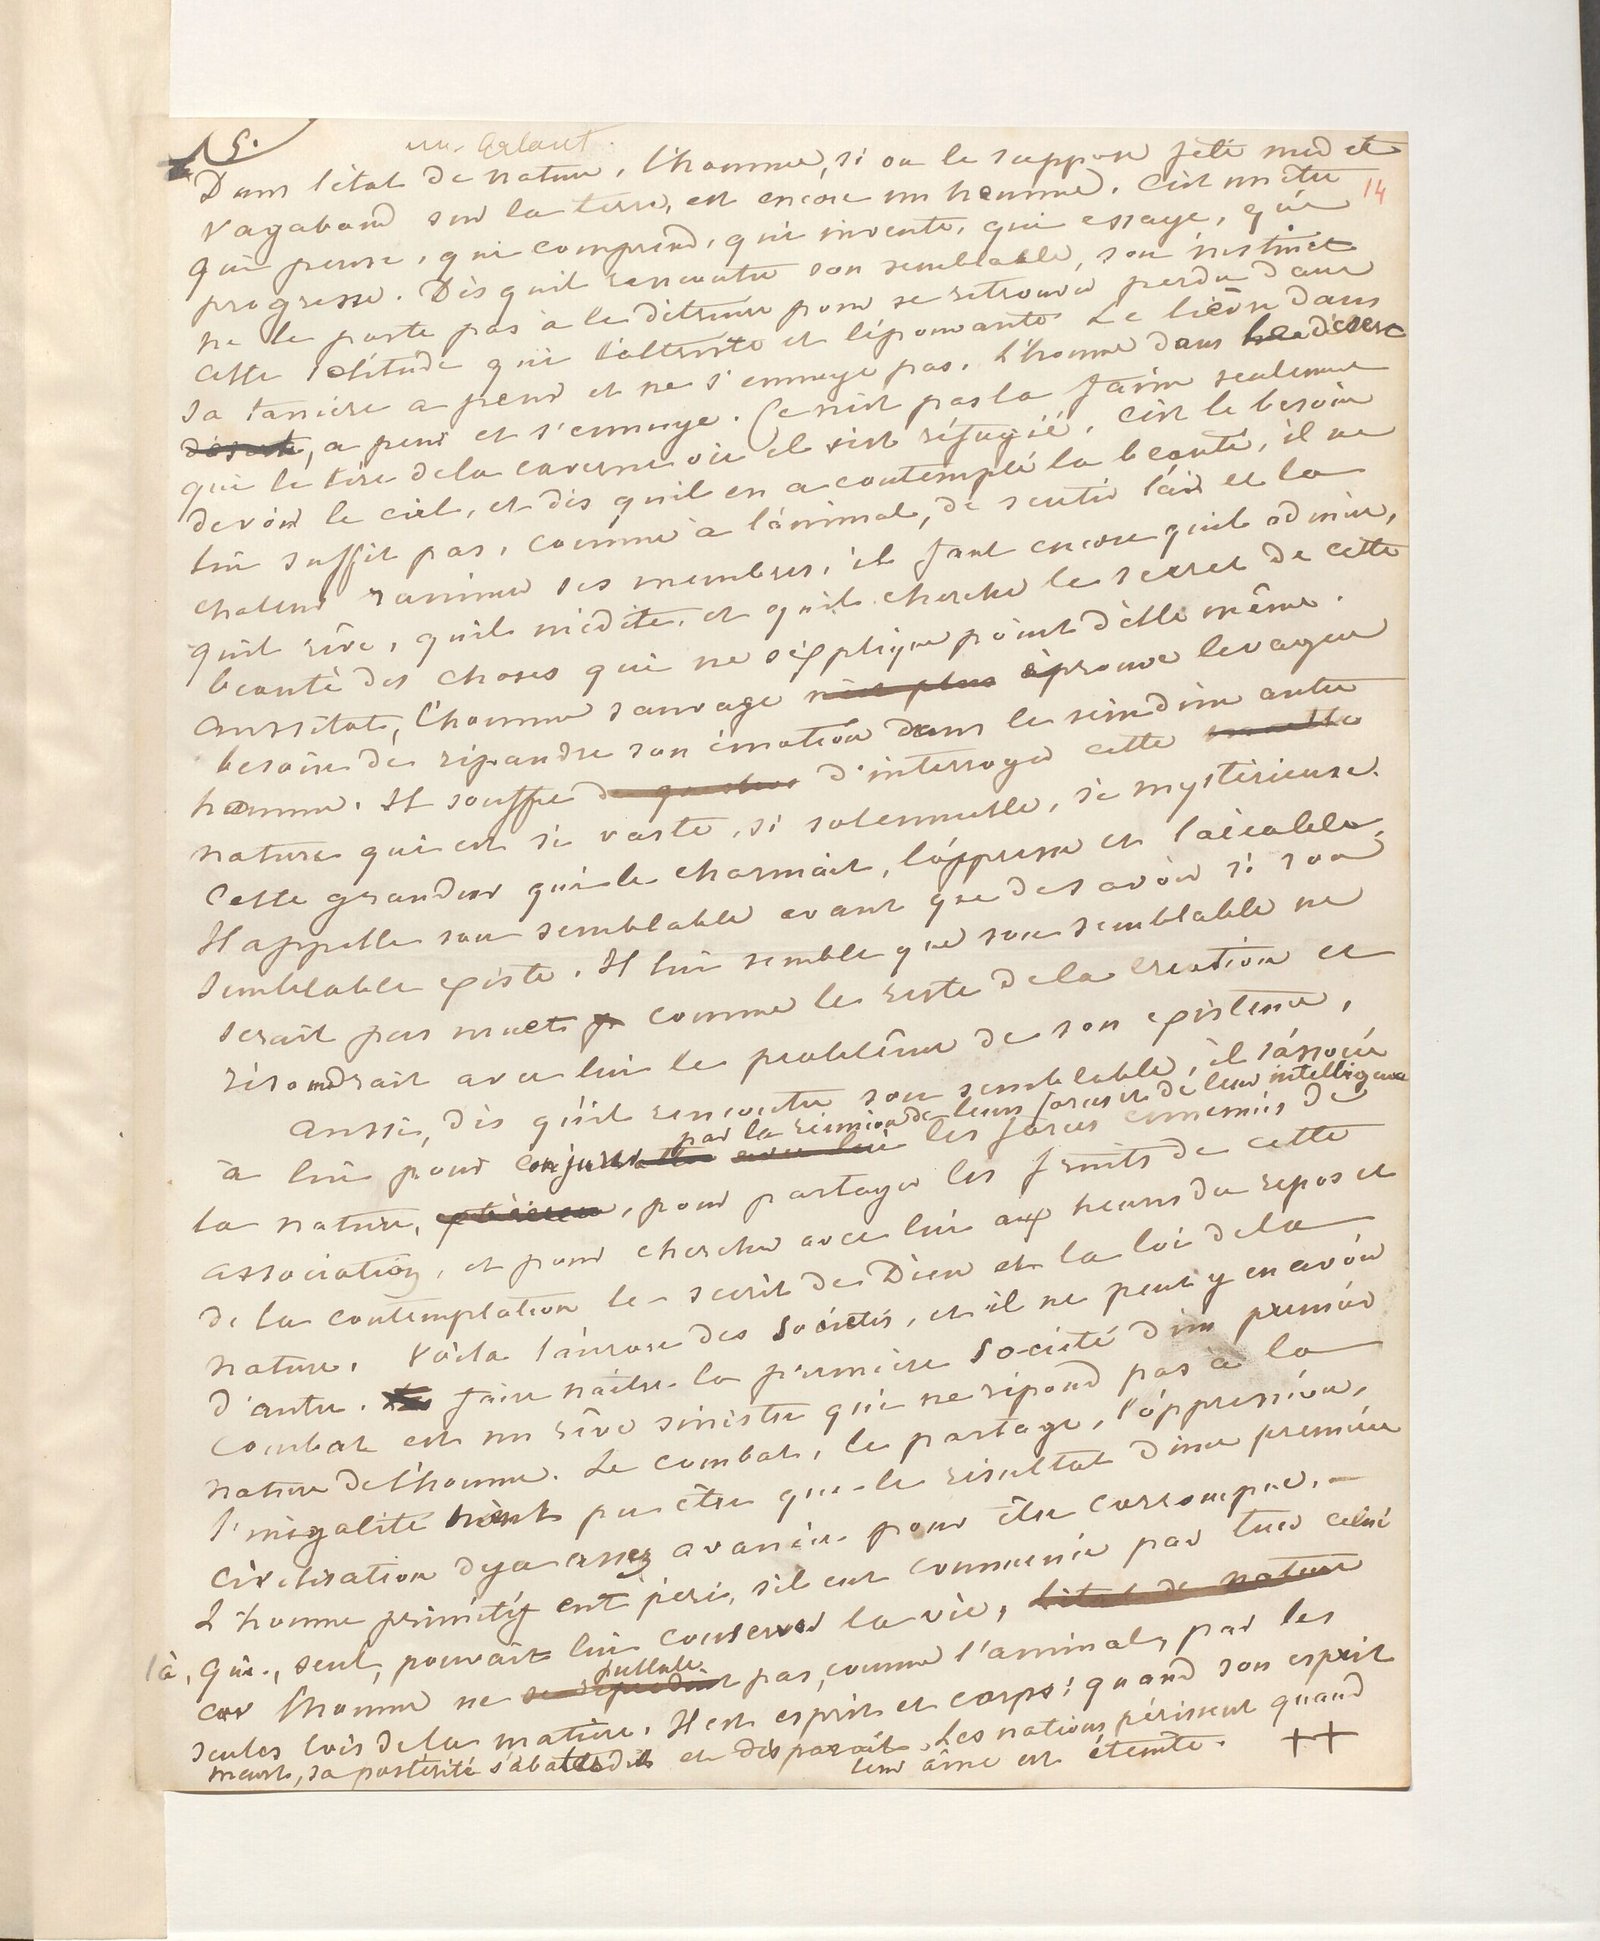 5.
14
Dans l'état de nature, l'homme, si on le suppose jeté nud et
vagabond sur la terre, est encore un homme. C'est un être
qui pense, qui comprend, qui invente, qui essaye, qui
progresse. Dès qu'il rencontre son semblable, son instinct
ne le porte pas à le détruire pour se retrouver perdu dans
cette solitude qui l'attriste et l'épouvante. Le lièvre dans
sa tanière a peur et ne s'ennuye pas. L'homme dans le désert
désert, a peur et s'ennuye. Ce n'est pas la faim seulement
qui le tire de la caverne où il s'est réfugié, c'est le besoin
de voir le ciel, et dès qu'il en a contemplé la beauté, il ne
lui suffit pas, comme à l'animal, de sentir l'air et la
chaleur ranimer ses membres, il faut encore qu'il admire,
qu'il rêve, qu'il médite, et qu'il cherche le secret de cette
beauté des choses qui ne s'explique point d'elle même.
Aussitôt, l'homme sauvage n'est plus éprouve le vague
besoin de répandre son émotion dans le sein d'un autre
homme. Il souffre d'interroger cette
nature qui est si vaste, si solennelle, si mystérieuse.
Cette grandeur qui le charmait, l'oppresse et l'accable.
Il appelle son semblable avant que de savoir si son
semblable existe. Il lui semble que son semblable ne
serait pas muet comme le reste de la création et
résoudrait avec lui le problême de son existence.
Aussi, dès qu'il rencontre son semblable, il s'associe
par la réunion de leurs forces et de leur intelligence
à lui pour conjurer avec lui les forces ennemies de
la nature, pour partager les fruits de cette
association, et pour chercher avec lui aux heures du repos et
de la contemplation le secret de Dieu et la loi de la
nature. Voilà l'aurore des sociétés, et il ne peut y en avoir
d'autre. faire naître la première société d'un premier
combat est un rêve sinistre qui ne répond pas à la
nature de l'homme. Le combat, le partage, l'oppression,
l'inégalité n'ont pu être que le résultat d'une première
civilisation dejà assez avancée pour être corrompue. —
L'homme primitif eut péri, s'il eut commencé par tuer celui
là, qui, seul, pouvait lui conserver la vie, l'état de nature
pullule
car l'homme ne se répand pas, comme l'animal, par les
seules lois de la matière. Il est esprit et corps: quand son esprit
meurt, sa postérité s'abatardit et disparait. Les nations périssent quand
leur âme est éteinte. ++